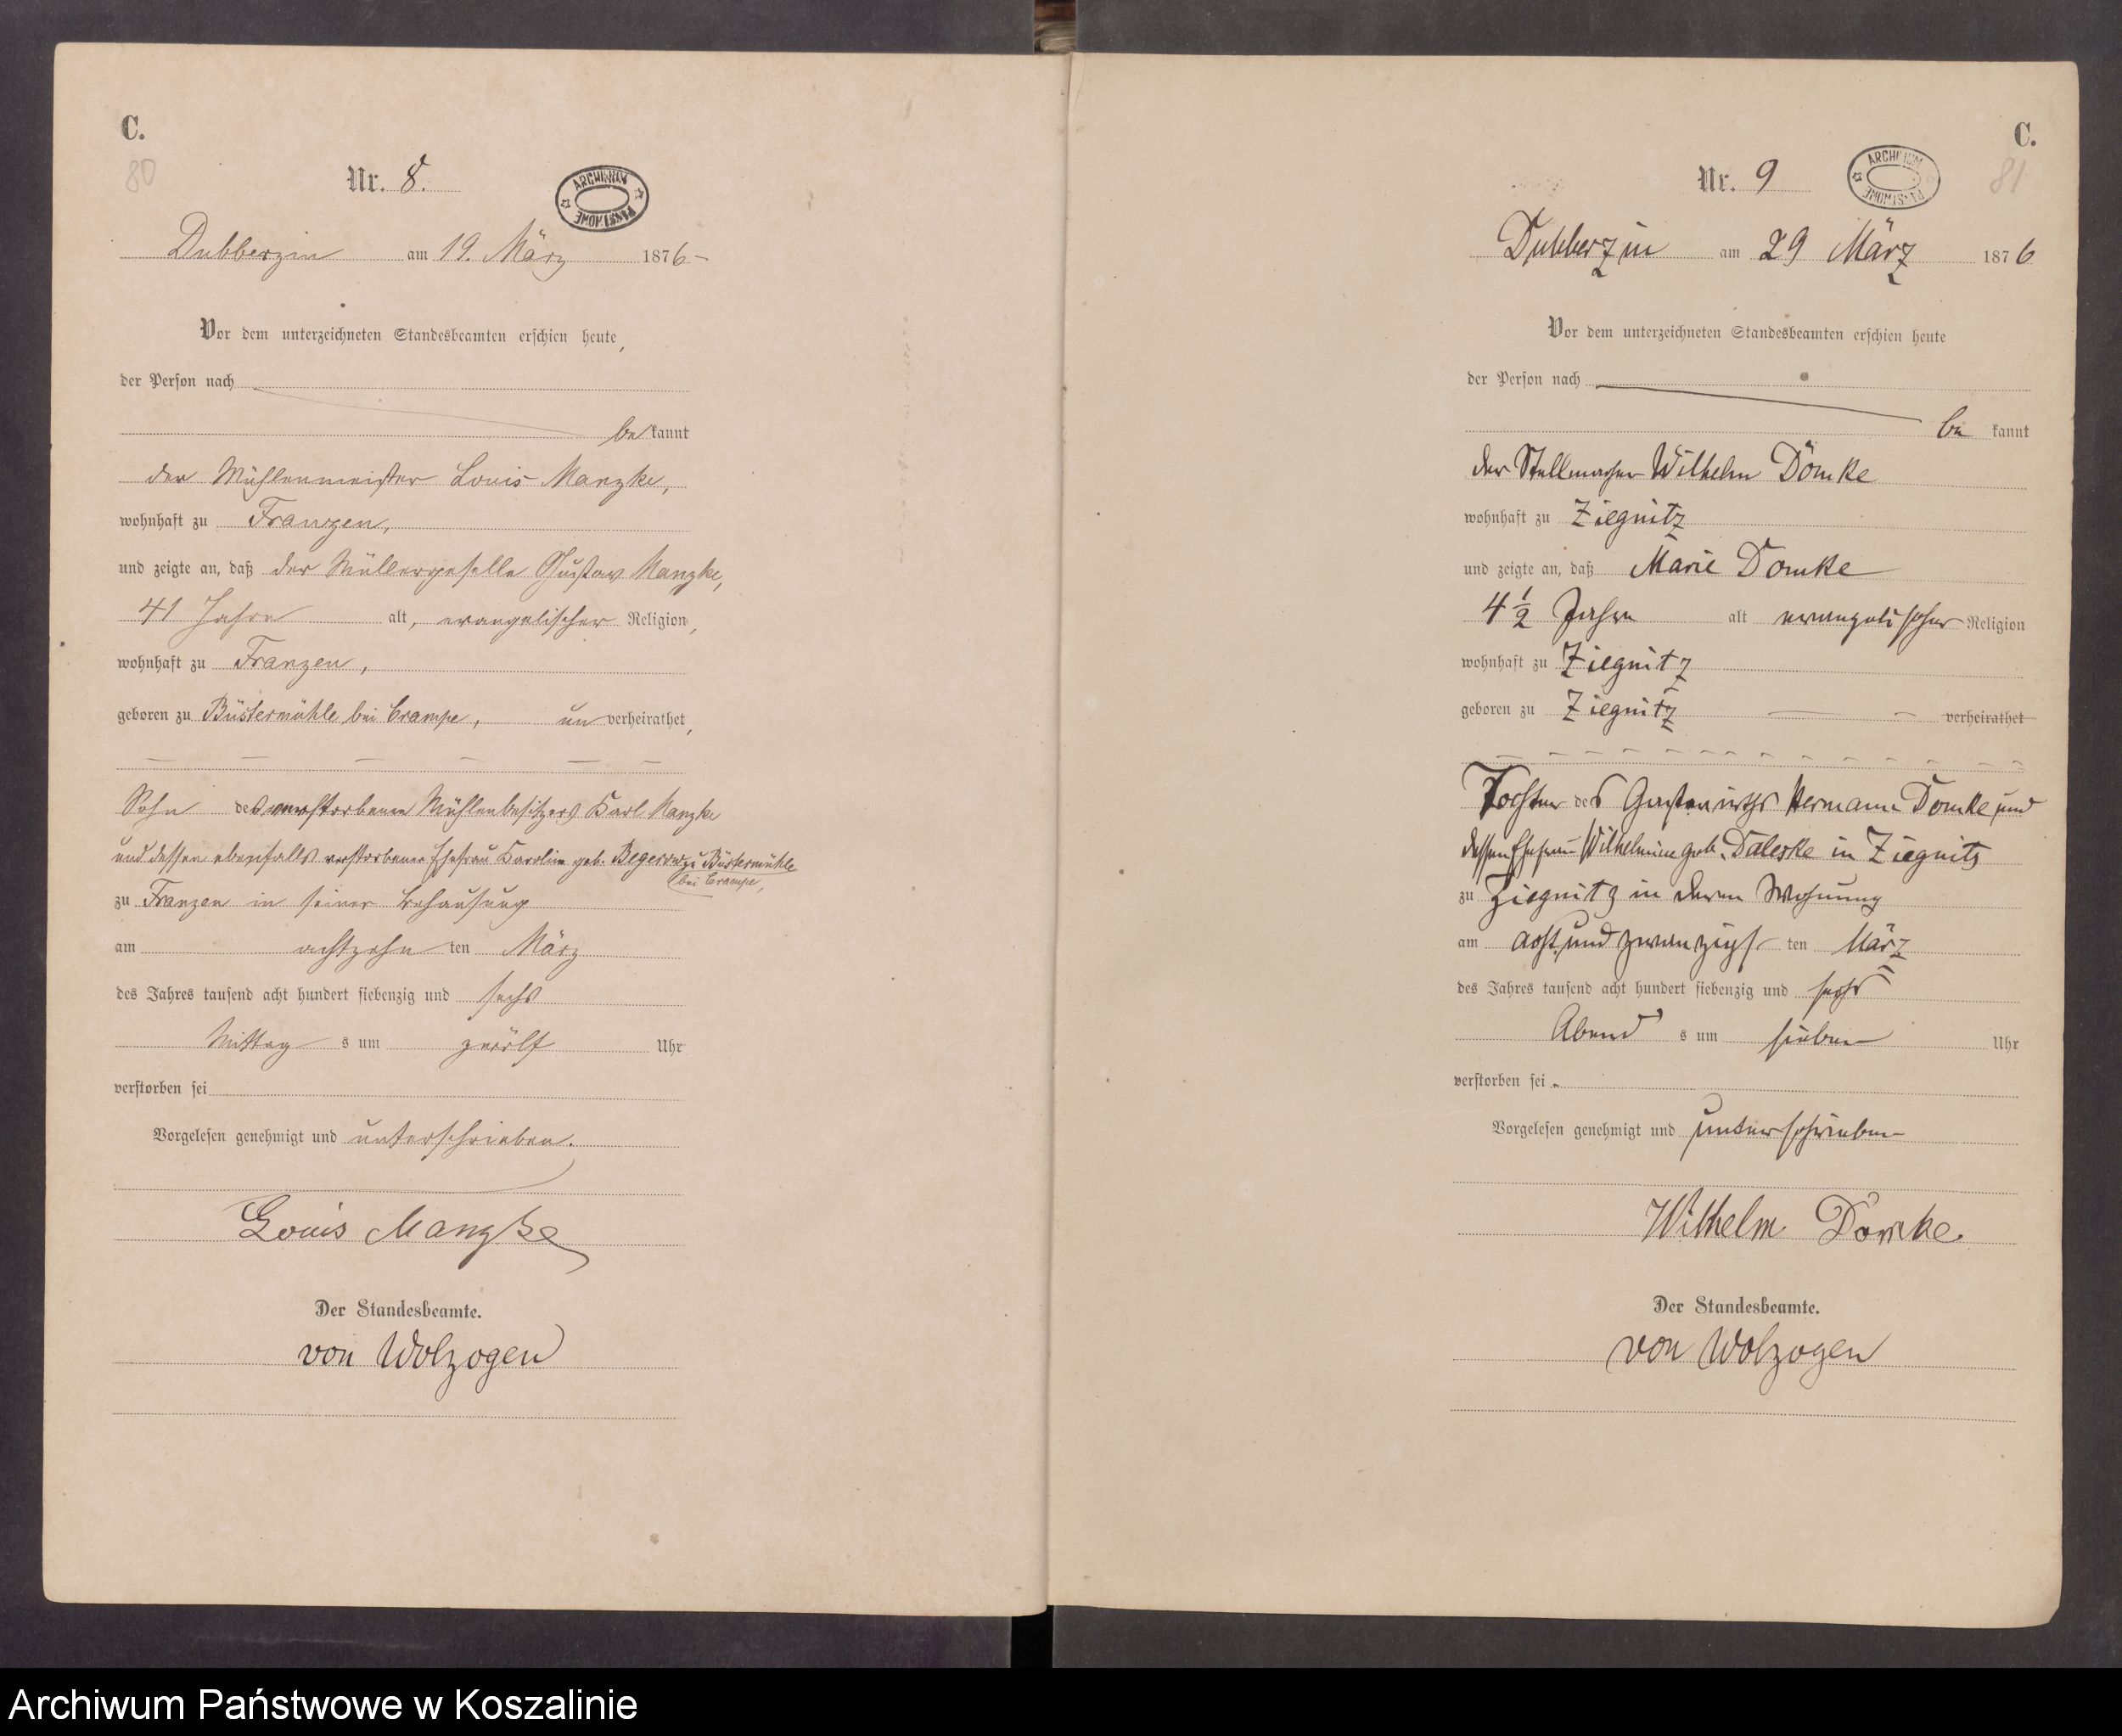 C.
80
Nr. 8.
ARCHIWUM PAŃSTWOWE
Dubberzin am 19. März 1876
Vor dem unterzeichneten Standesbeamten erschien heute,
der Person nach
bekannt
der Mühlenmeister Louis Manzke,
wohnhaft zu Franzen,
und zeigte an, daß der Müllergeselle Gustav Manzke,
41 Jahre alt, evangelischer Religion,
wohnhaft zu Franzen,
geboren zu Büstermühle bei Crampe, unverheirathet,
Sohn des verstorbenen Mühlenbesitzers Karl Manzke
und dessen ebenfalls verstorbener Ehefrau Karoline geb. Begerow zu Büstermühle
bei Crampe,
zu Franzen in seiner Behausung
am achtzehnten März
des Jahres tausend acht hundert siebenzig und sechs
Mittags um zwölf Uhr
verstorben sei
Vorgelesen genehmigt und unterschrieben.
Louis Manzke
Der Standesbeamte.
von Wolzogen
C.
81
Nr. 9
ARCHIWUM PAŃSTWOWE
Dubberzin am 29 März 1876
Vor dem unterzeichneten Standesbeamten erschien heute
der Person nach
bekannt
der Stellmacher Wilhelm Dömke
wohnhaft zu Ziegnitz
und zeigte an, daß Marie Domke
4 1/2 Jahre alt evangelischer Religion
wohnhaft zu Ziegnitz
geboren zu Ziegnitz verheirathet
Tochter des Gastwirths Hermann Domke und
dessen Ehefrau Wilhelmine geb. Daleske in Ziegnitz
zu Ziegnitz in deren Wohnung
am acht und zwanzigsten März
des Jahres tausend acht hundert siebenzig und sechs
Abends um sieben Uhr
verstorben sei.
Vorgelesen genehmigt und unterschrieben
Wilhelm Domke.
Der Standesbeamte.
von Wolzogen
Archiwum Państwowe w Koszalinie